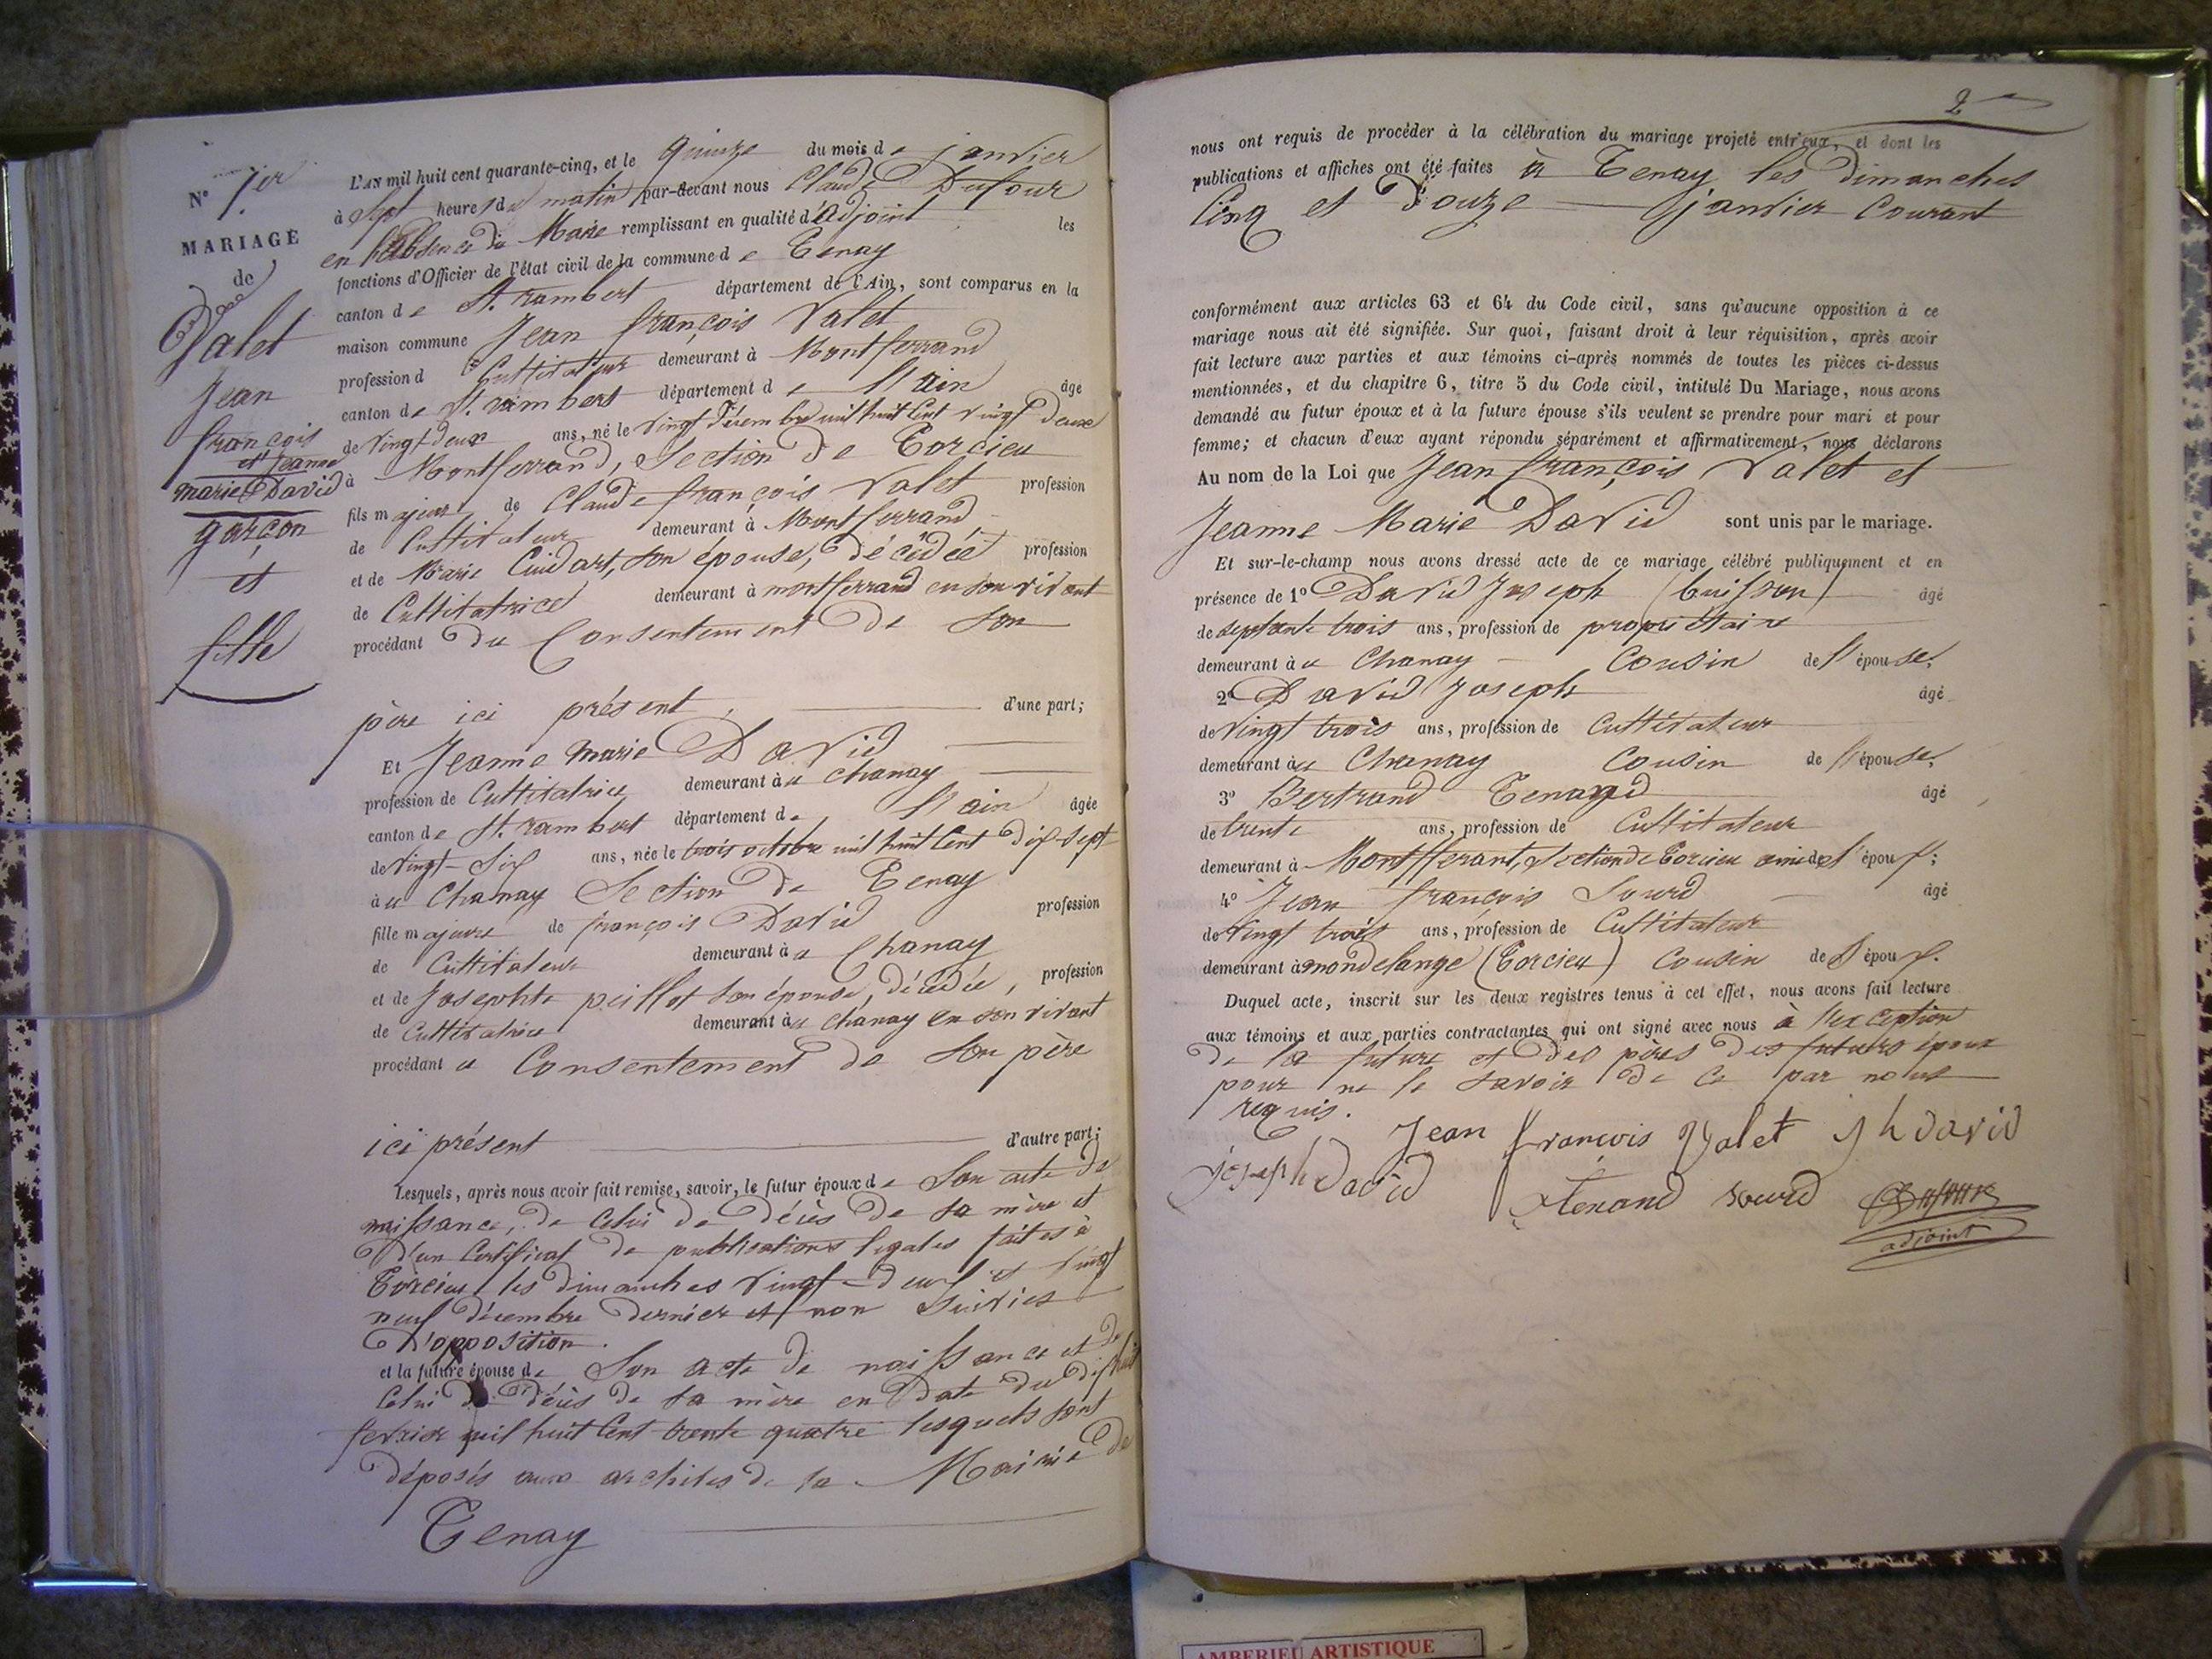 N° 1er
MARIAGE
de
Valet
Jean
françois
et Jeanne
marie David
garçon
et
fille
L'AN mil huit cent quarante-cinq, et le quinze du mois de janvier
à Sept heures du matin par-devant nous Claude Dufour
en l'absence du Maire remplissant en qualité d'adjoint les
fonctions d'Officier de l'état civil de la commune de Tenay
canton de St. rambert département de l'Ain, sont comparus en la
maison commune Jean françois Valet
profession de Cultivateur demeurant à Montferrand
canton de St. rambert département de l'ain âgé
de vingt deux ans, né le vingt décembre mil huit Cent vingt deux
à Montferrand, Section de Torcieu
fils majeur de Claude françois Valet profession
de Cultivateur demeurant à Montferrand,
et de Marie Cuidart, son épouse, décédée profession
de Cultivatrice demeurant à montferrand en son vivant
procédant du Consentement de son
père ici présent, d'une part;
Et Jeanne Marie David
profession de Cultivatrice demeurant à u chanay
canton de St. rambert département de l'ain âgée
de vingt-Six ans, née le trois octobre mil huit Cent dix-sept
à u Chanay Section de Tenay
fille majeure de françois David profession
de Cultivateur demeurant à u Chanay
et de Josephte peillot son épouse, décédée, profession
de Cultivatrice demeurant à u chanay en son vivant
procédant u Consentement de son père
ici présent d'autre part;
Lesquels, après nous avoir fait remise, savoir, le futur époux de Son acte de
naissance, de Celui de décès de sa mère et
d'un Certificat de publications legales faites à
Torcieu les dimanches vingt-deux et vingt
neuf décembre dernier et non suivies
d'opposition.
et la future épouse de Son acte de naissance et de
Celui de décès de sa mère en date du dix huit
fevrier mil huit Cent trente quatre lesquels sont
déposés aux archives de la Mairie de
Tenay
2
nous ont requis de procéder à la célébration du mariage projeté entr'eux, et dont les
publications et affiches ont été faites à Tenay les dimanches
Cinq et douze janvier Courant
conformément aux articles 63 et 64 du Code civil, sans qu'aucune opposition à ce
mariage nous ait été signifiée. Sur quoi, faisant droit à leur réquisition, après avoir
fait lecture aux parties et aux témoins ci-après nommés de toutes les pièces ci-dessus
mentionnées, et du chapitre 6, titre 5 du Code civil, intitulé Du Mariage, nous avons
demandé au futur époux et à la future épouse s'ils veulent se prendre pour mari et pour
femme; et chacun d'eux ayant répondu séparément et affirmativement, nous déclarons
Au nom de la Loi que Jean françois Valet et
Jeanne Marie David sont unis par le mariage.
Et sur-le-champ nous avons dressé acte de ce mariage célébré publiquement et en
présence de 1° David Joseph (buisson) âgé
de septante trois ans, profession de propriétaire
demeurant à u Chanay Cousin de l'épouse,
2° David Joseph âgé
de vingt trois ans, profession de Cultivateur
demeurant à u Chanay Cousin de l'épouse,
3° Bertrand Tenand âgé
de trente ans, profession de Cultivateur
demeurant à Montfferant, Section de Torcieu ami de l'époux;
4° Jean françois Sourd âgé
de vingt trois ans, profession de Cultivateur
demeurant à mondelange (Torcieu) Cousin de l'époux.
Duquel acte, inscrit sur les deux registres tenus à cet effet, nous avons fait lecture
aux témoins et aux parties contractantes qui ont signé avec nous à l'exception
de la future et des pères des futurs époux
pour ne le savoir de ce par nous
requis.
Jean françois Valet Jh David
joseph David tenand sourd Dufour
adjoint
AMBERIEU ARTISTIQUE